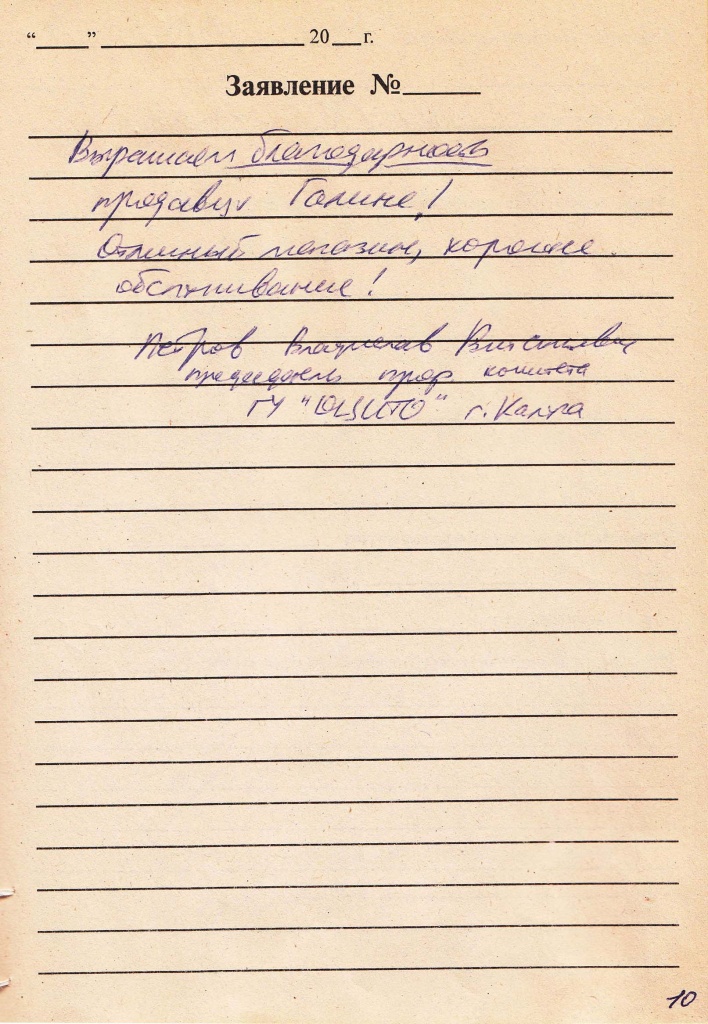 “____” ____________________ 20___г.
Заявление №______
Выражаем благодарность
продавцу Галине!
Отличный магазин, хорошее
обслуживание!
Петров Владислав
председатель проф. комитета
ГУ "ОЦИТО" г. Калуга
10